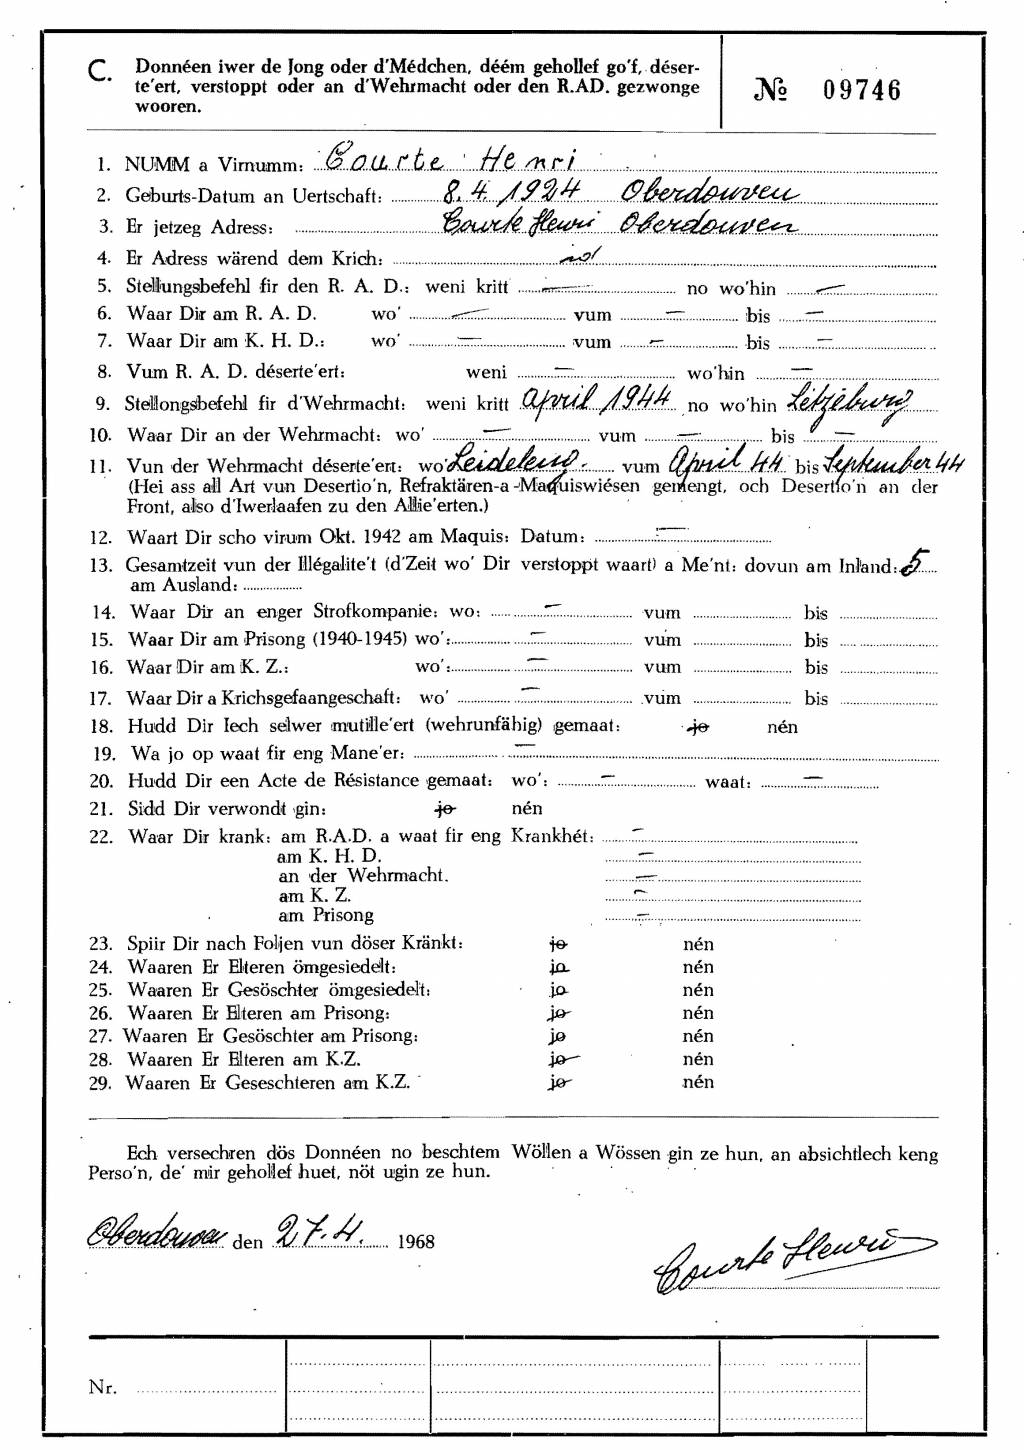 C. Donnéen iwer de Jong oder d'Médchen, déém gehollef go'f, déser-
te'ert, verstoppt oder an d'Wehrmacht oder den R.AD. gezwonge
wooren.
№ 09746
1. NUMM a Virnumm: Courte Henri
2. Geburts-Datum an Uertschaft: 8.4.1924 Oberdonven
3. Er jetzeg Adress: Courte Henri Oberdonven
4. Er Adress wärend dem Krich:
5. Stellungsbefehl fir den R. A. D.: weni kritt — no wo'hin —
6. Waar Dir am R. A. D. wo' — vum — bis —
7. Waar Dir am K. H. D.: wo' — vum — bis —
8. Vum R. A. D. déserte'ert: weni — wo'hin —
9. Stellongsbefehl fir d'Wehrmacht: weni kritt April 1944 no wo'hin Letzeburg
10. Waar Dir an der Wehrmacht: wo' — vum — bis —
11. Vun der Wehrmacht déserte'ert: wo' vum April 44 bis September 44
(Hei ass all Art vun Desertio'n, Refraktären-a -Maquiswiésen gemengt, och Desertio'n an der
Front, also d'Iwerlaafen zu den Allie'erten.)
12. Waart Dir scho virum Okt. 1942 am Maquis: Datum: —
13. Gesamtzeit vun der Illégalite't (d'Zeit wo' Dir verstoppt waart) a Me'nt: dovun am Inland: 5
am Ausland:
14. Waar Dir an enger Strofkompanie: wo: — vum bis
15. Waar Dir am Prisong (1940-1945) wo': — vum bis
16. Waar Dir am K. Z.: wo': — vum bis
17. Waar Dir a Krichsgefaangeschaft: wo' — vum bis
18. Hudd Dir Iech selwer mutille'ert (wehrunfähig) gemaat: jo nén
19. Wa jo op waat fir eng Mane'er: —
20. Hudd Dir een Acte de Résistance gemaat: wo': — waat: —
21. Sidd Dir verwondt gin: jo nén
22. Waar Dir krank: am R.A.D. a waat fir eng Krankhét: —
am K. H. D. —
an der Wehrmacht. —
am K. Z. —
am Prisong —
23. Spiir Dir nach Foljen vun döser Kränkt: jo nén
24. Waaren Er Elteren ömgesiedelt: jo nén
25. Waaren Er Gesöschter ömgesiedelt: jo nén
26. Waaren Er Elteren am Prisong: jo nén
27. Waaren Er Gesöschter am Prisong: jo nén
28. Waaren Er Elteren am K.Z. jo nén
29. Waaren Er Geseschteren am K.Z. jo nén
Ech versechren dös Donnéen no beschtem Wöllen a Wössen gin ze hun, an absichtlech keng
Perso'n, de' mir gehollef huet, nöt ugin ze hun.
Oberdonven den 27.4. 1968
Courte Henri
Nr.